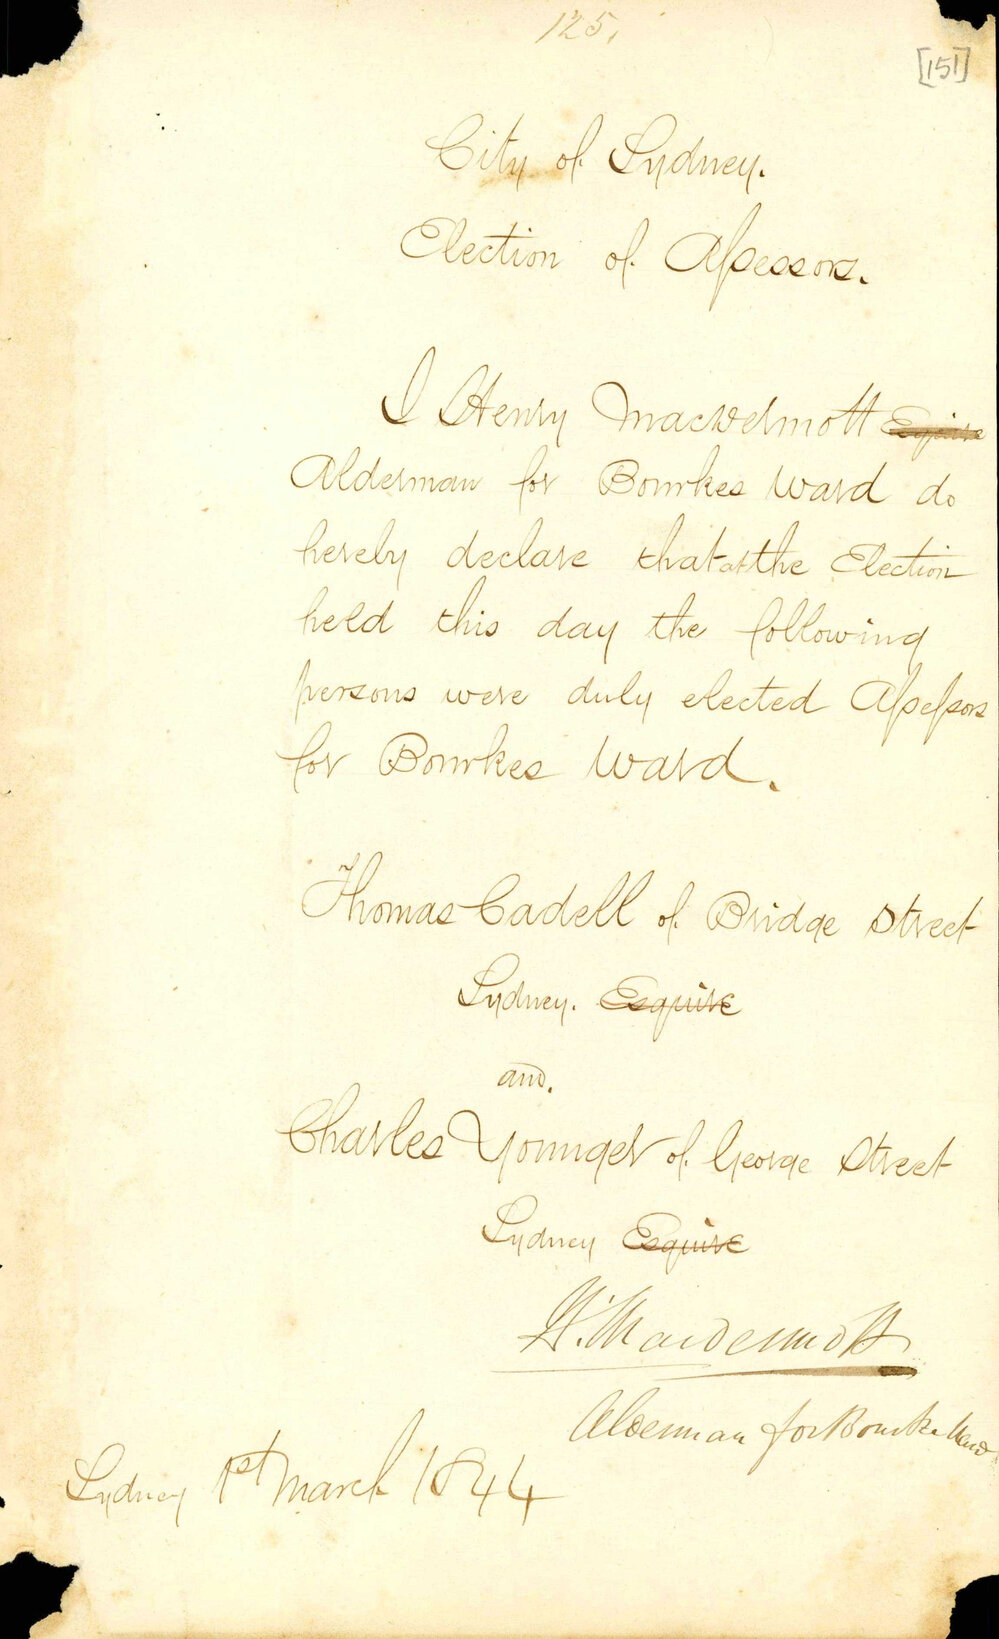 125.
[151]
City of Sydney.
Election of Assessors.
I Henry Macdermott Esquire
Alderman for Bourkes Ward do
hereby declare that at the Election
held this day the following
persons were duly elected Assessors
for Bourkes Ward.
Thomas Cadell of Bridge Street
Sydney. Esquire
and.
Charles Younger of George Street
Sydney Esquire
H. Macdermott
Alderman for Bourke Ward
Sydney 1st March 1844